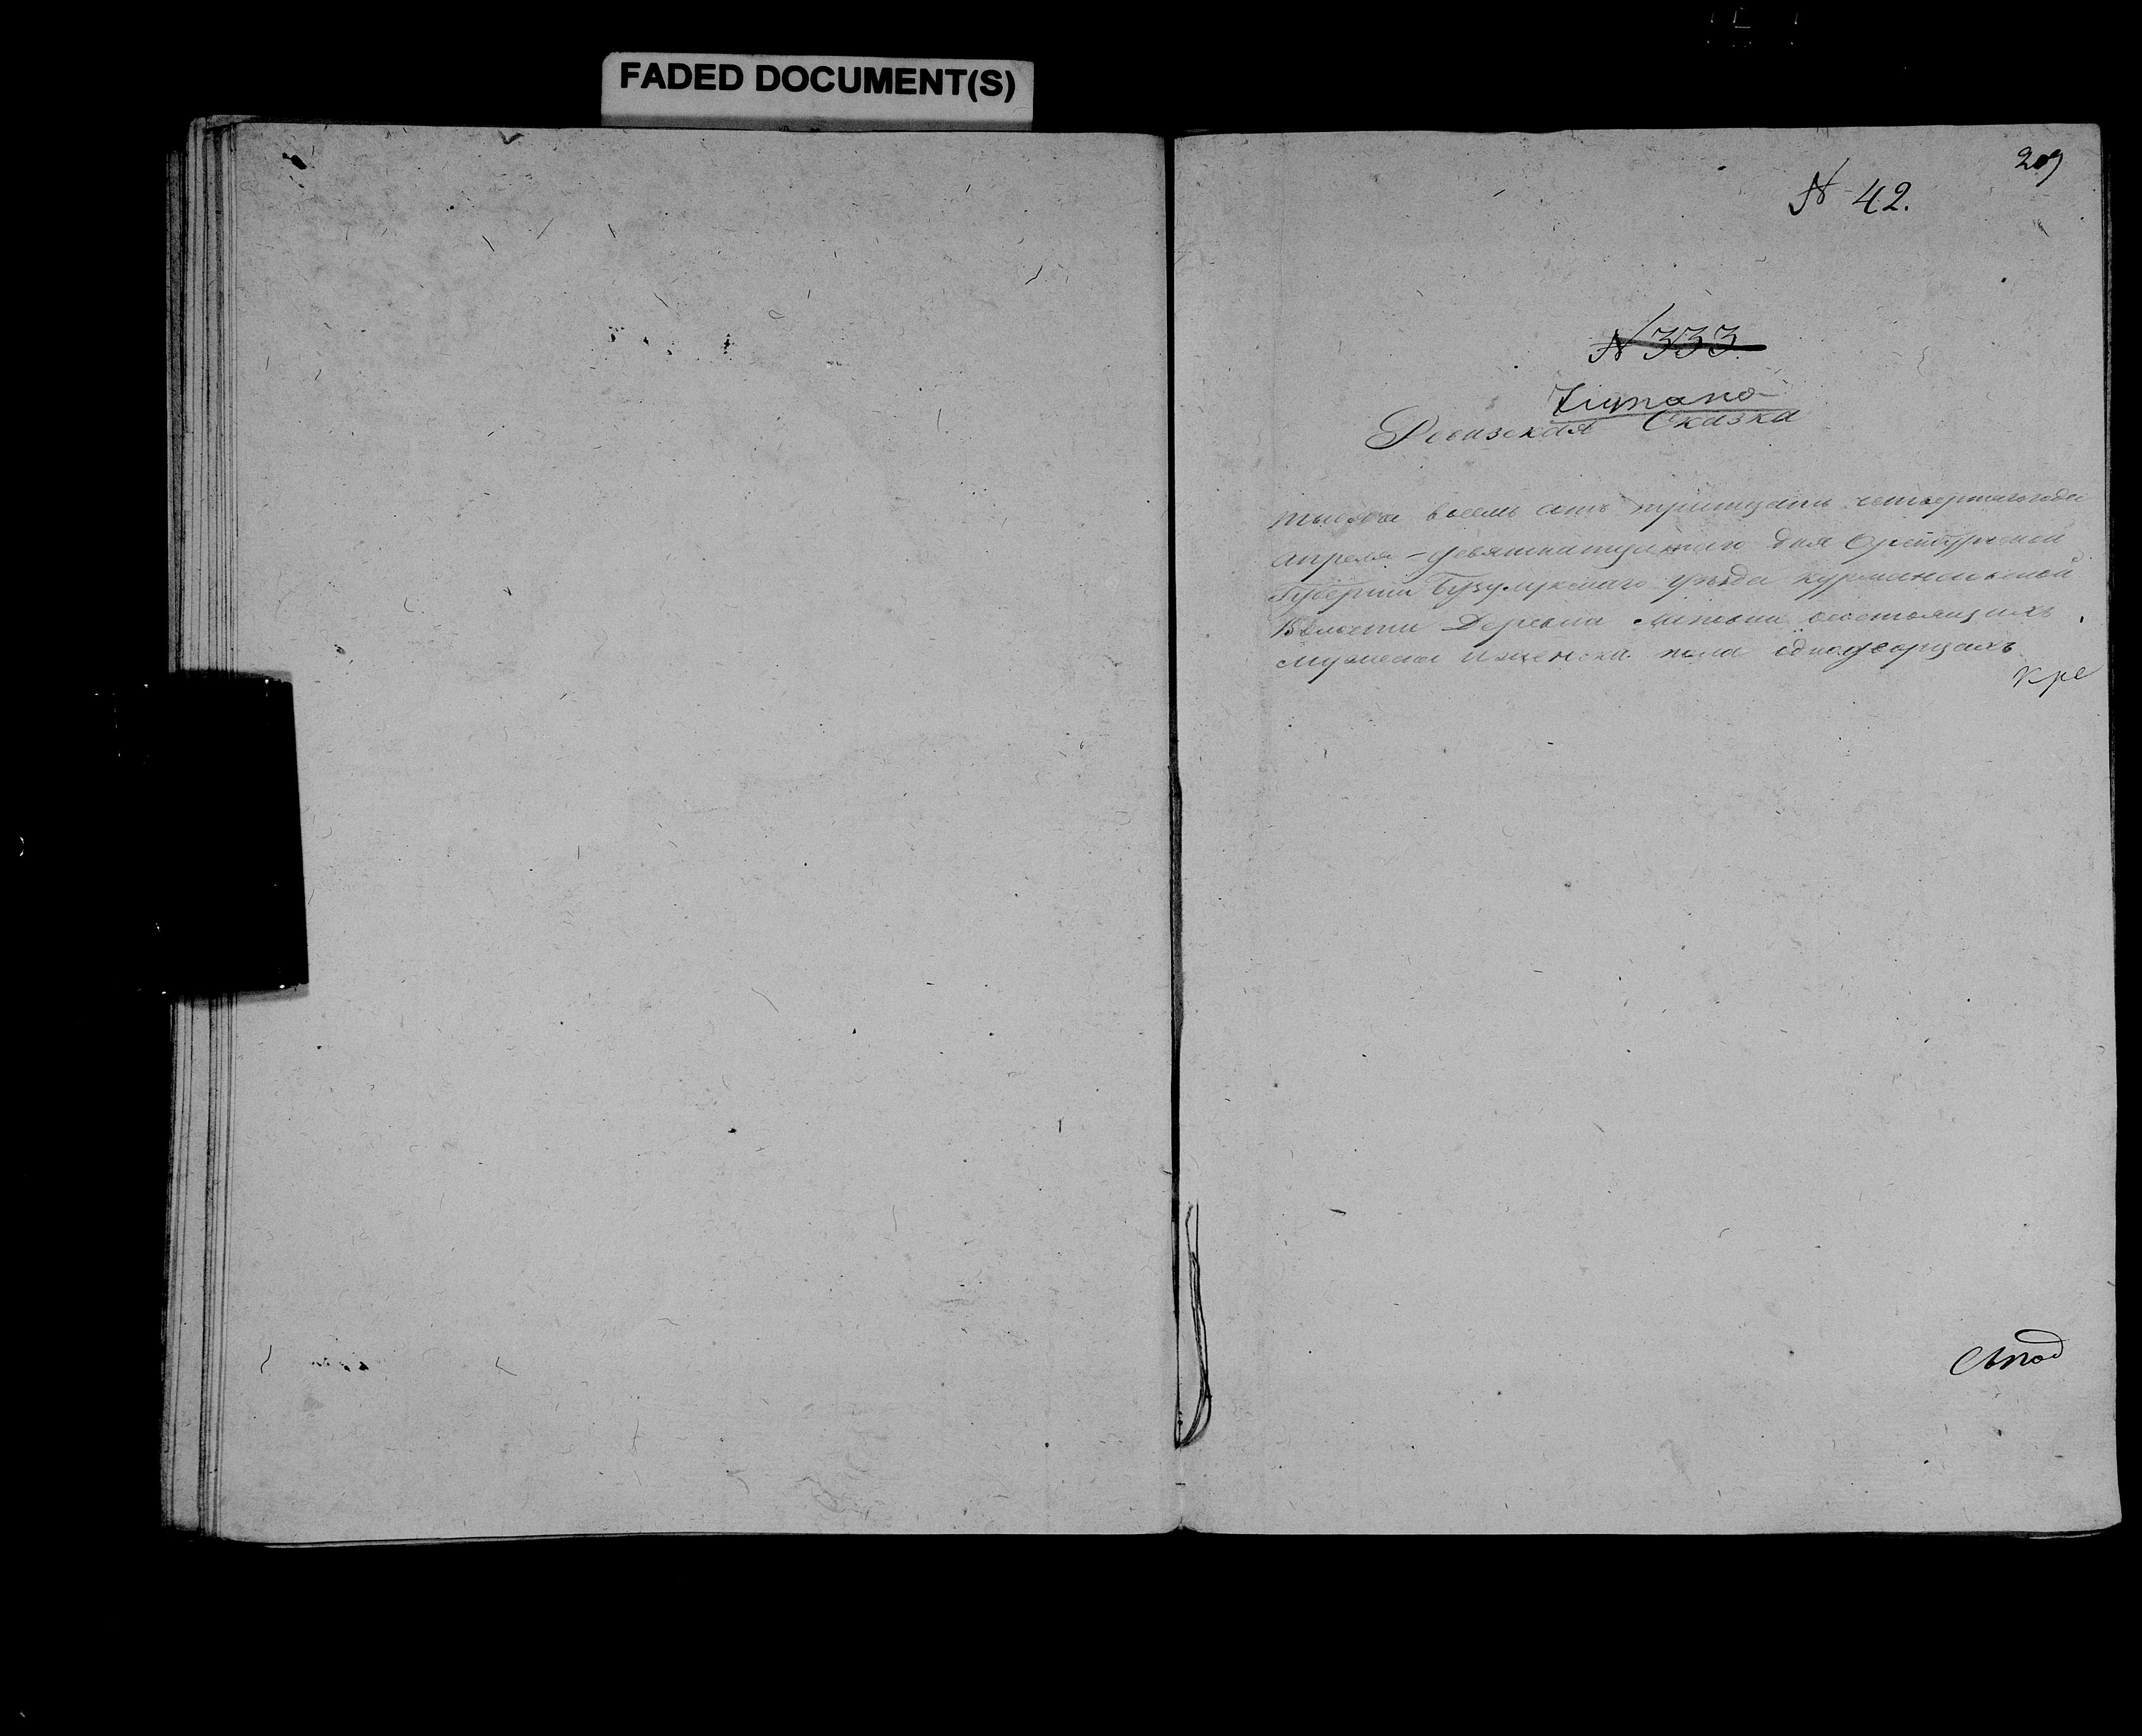 FADED DOCUMENT(S)
209
№ 42.
№ 333
Читано
Ревизская Сказка
тысяча восемь сотъ тритцать четвертаго года
апреля - девятнатцатаго дня Оренбургской
Губернии Бузулукскаго уезда курманаевской
Волости Деревни состоящихъ
мужеска и женска пола однодворцахъ